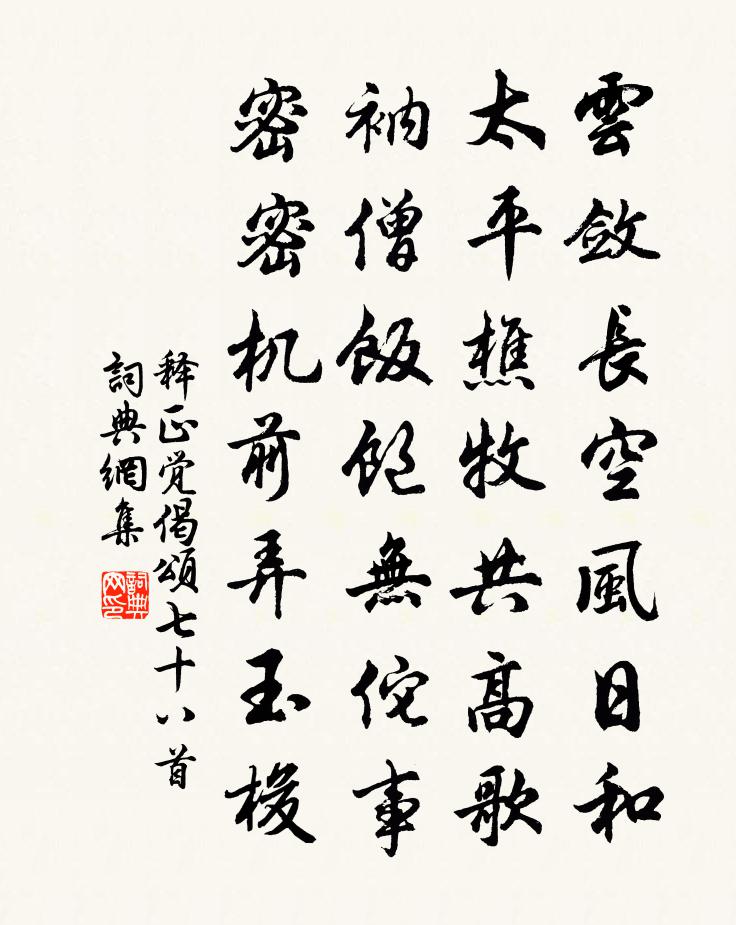 雲斂長空風日和
太平樵牧共高歌
衲僧飯飽無侘事
密密机前弄玉梭
释正觉偈頌七十八首
詞典網集
詞典网印